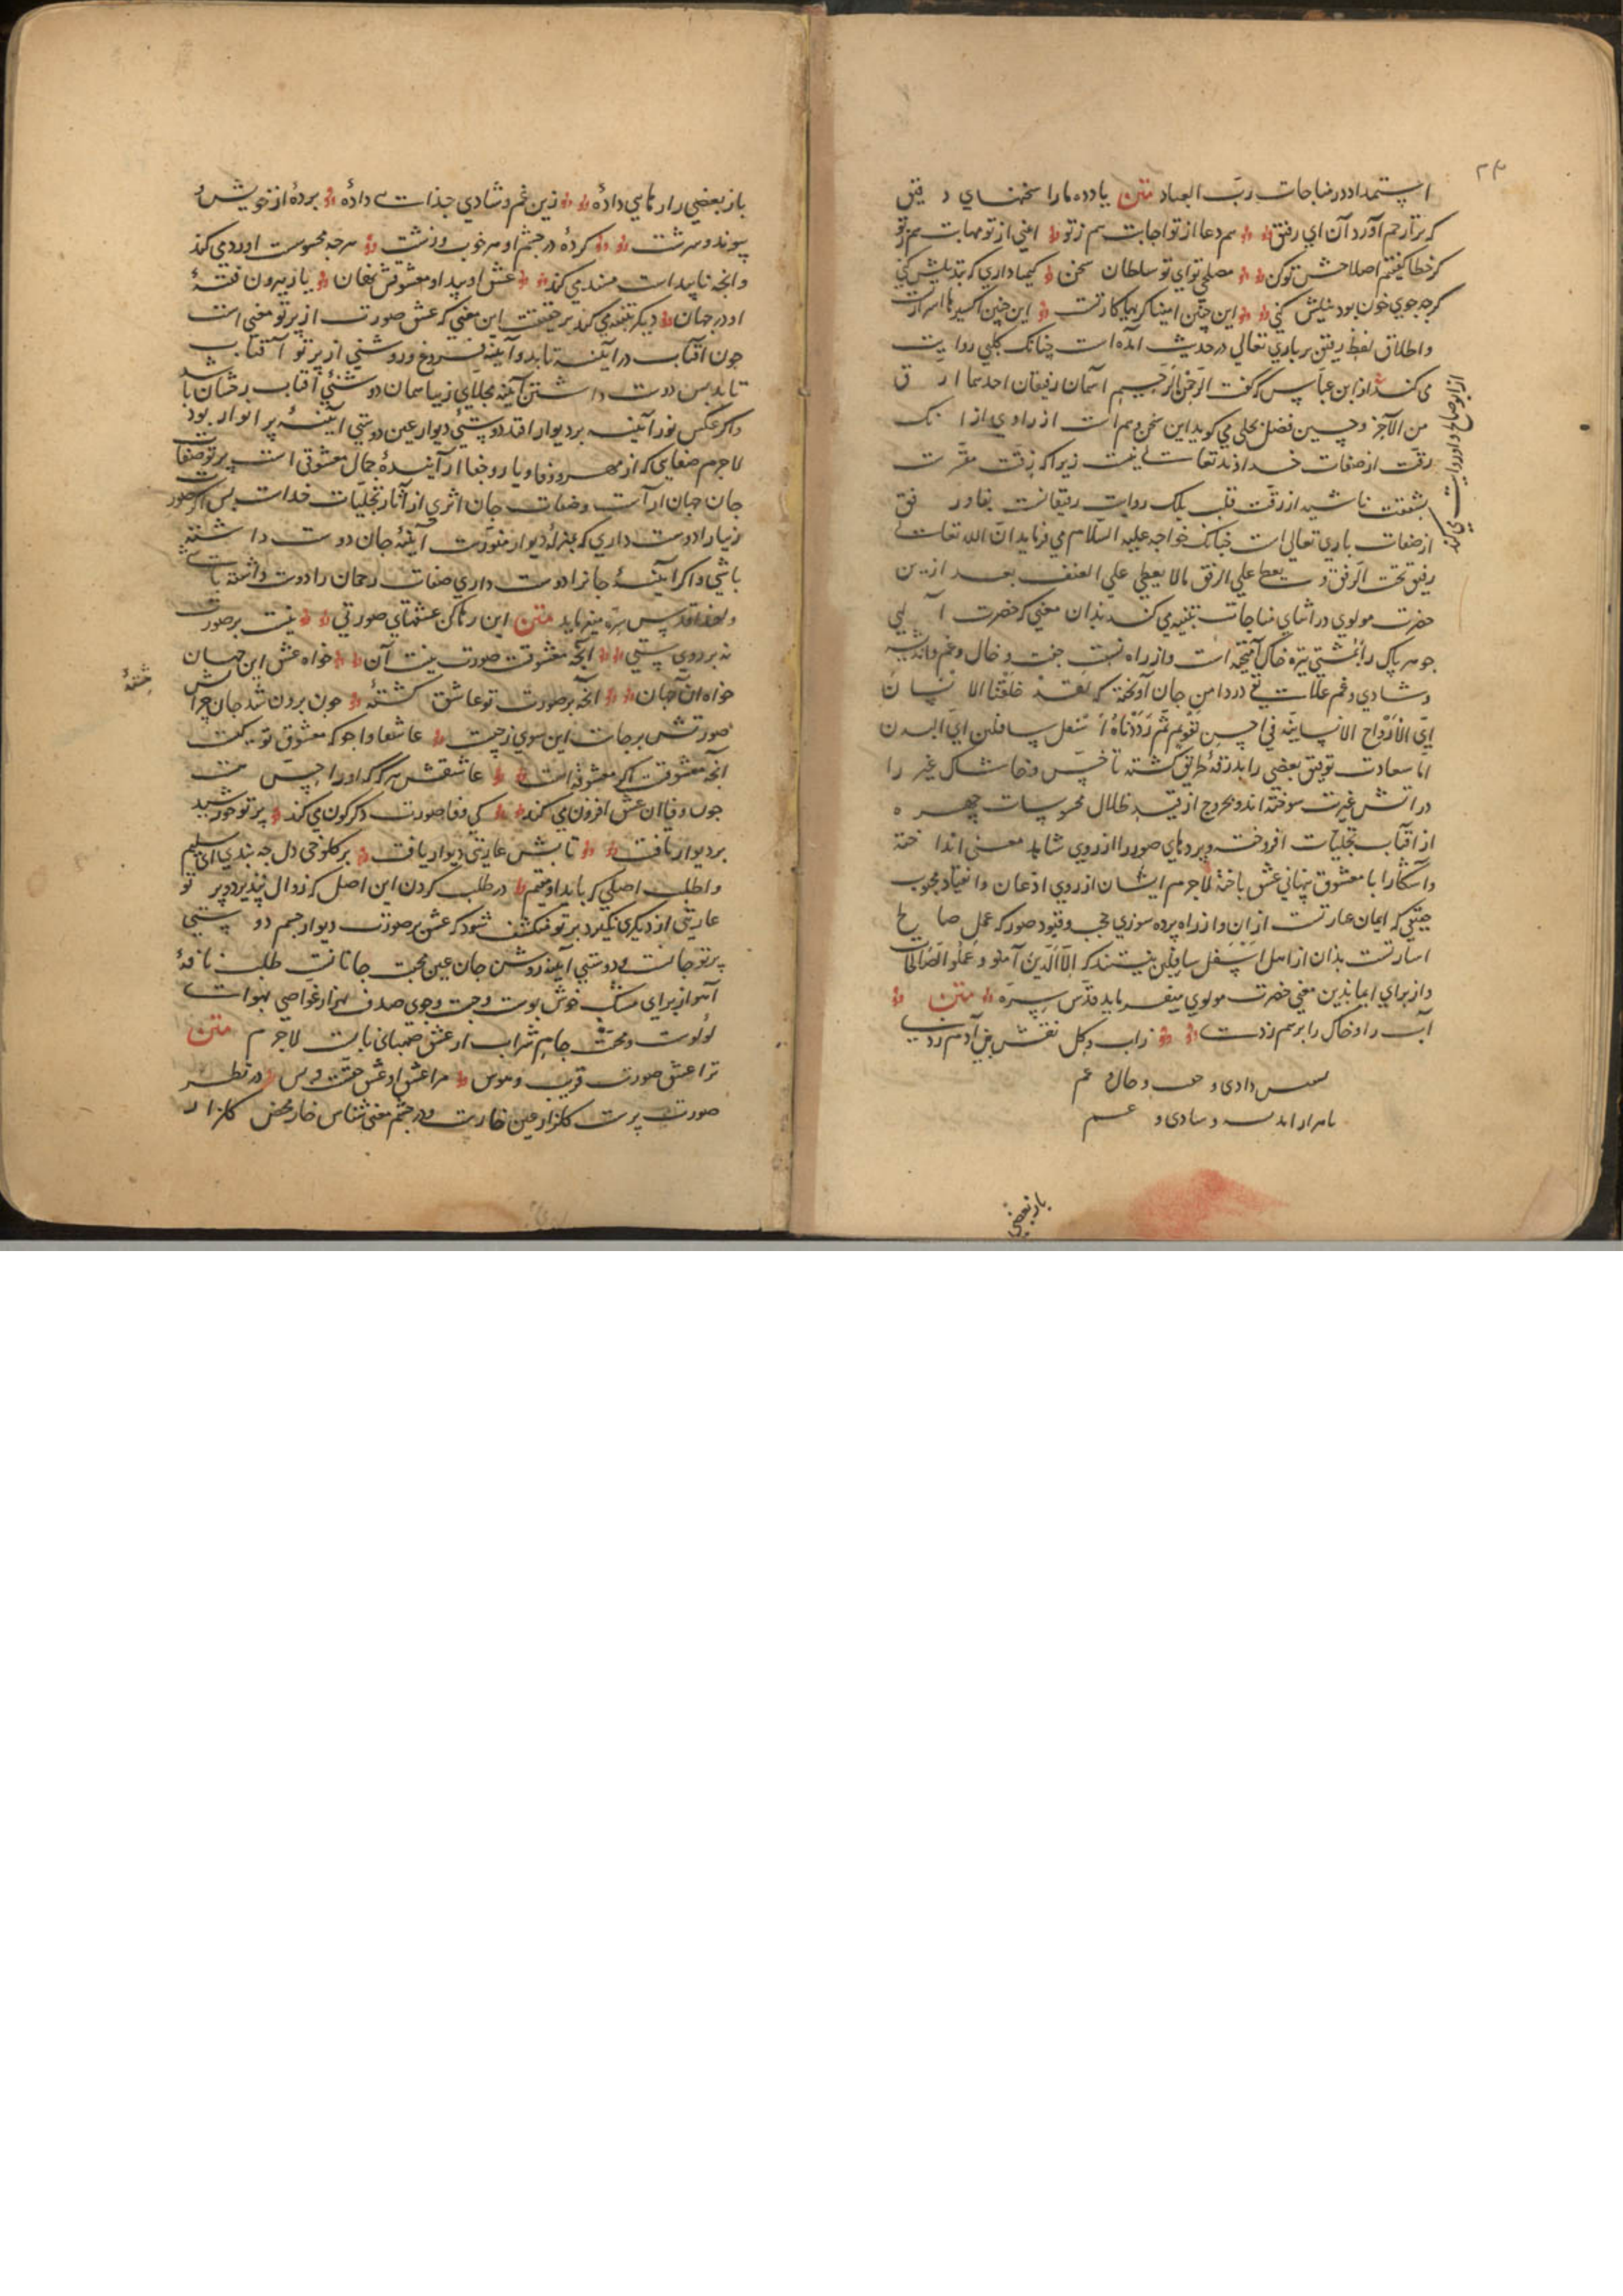 استمداد در مناجات رب العباد متن یاد ده ما را سخنهای دقیق
که برتا رحم آورد آن ای رفیق هم دعا از تو اجابت هم ز تو ایمنی از تو مهابت هم ز تو
گر خطا گفتیم اصلاحش تو کن مصلحی تو ای تو سلطان سخن کیمیا داری که تبدیلش کنی
گرچه جوی خون بود نیلش کنی این چنین میناگریها کار تست این چنین اکسیرها اسرار تست
و اطلاق لفظ رفیق بر باری تعالی در حدیث آمده است چنانک کلبی روایت
می کند از ابن عباس که گفت الرحمن الرحیم اسمان رفیقان احدهما ارق
من الآخر و حسین فضل بجلی می گوید این سخن وهم است از راوی از آنک
رقت از صفات خداوند تعالی نیست زیرا که رقت مفسرت
بشفقت ناشیه از رقت قلب بلک روایت رفیقانست بفا و رفق
از صفات باری تعالی است چنانک خواجه علیه السلام می فرماید ان الله تعالی
رفیق یحب الرفق و یعطی علی الرفق مالا یعطی علی العنف بعد ازین
حضرت مولوی در اثنای مناجات تنبیه می کند بدان معنی که حضرت الهی
جوهر پاک را بمشتی تیره خاک آمیخته است و از راه نسبت جفت و خال و غم و اندیشه
و شادی و غم علایق در دامن جان آویخته که لقد خلقنا الانسان
ای الارواح الانسانیه فی احسن تقویم ثم رددناه اسفل سافلین ای البدن
اما سعادت توفیق بعضی را بدرقهٔ طریق گشته تا خس و خاشاک غیر را
در آتش غیرت سوخته اند و بخروج از قید ظلال محسوسات چهره
از آفتاب تجلیات افروخته و پردهای صور را از روی شاهد معنی انداخته
و آشکارا با معشوق پنهانی عشق باخته لاجرم ایشان از روی اذعان و انقیاد محبوب
حقیقی که ایمان عبارتست از آن و از راه پرده سوزی حجب و قیود صور که عمل صالح
اشارتست بدان از اهل اسفل سافلین نیستند که الا الذین آمنوا و عملوا الصالحات
و از برای ایما بدین معنی حضرت مولوی میفرماید قدس سره متن
آب را و خاک را بر هم زدی ز آب و گل نقش تن آدم زدی
نسبتش دادی و جفت و خال و عم
با هزار اندیشه و شادی و غم
از ابو صالح و او روایت می کند
باز بعضی
باز بعضی را رهایی دادهٔ زین غم و شادی جدایی دادهٔ بردهٔ از خویش و
پیوند و سرشت کردهٔ در چشم او هر خوب و زشت هر چه محسوست او رد می کند
و آنچه ناپیداست مسند می کند عشق او پیدا و معشوقش نهان یار بیرون فتنهٔ
او در جهان دیگر تنبیه می کند بر حقیقت این معنی که عشق صورت از پرتو معنی است
چون آفتاب در آینه تابد و آینه فروغ و روشنی از پرتو آفتاب
تابد پس دوست داشتن آینه مجلای زیبا همان دوستی آفتاب رخشان باشد
و اگر عکس نور آینه بر دیوار افتد دوستی دیوار عین دوستی آینهٔ پر انوار بود
لاجرم صفایی که از مهر و وفا و یا رو جفا از آینهٔ جمال معشوقی است پرتو صفات
جان جهان آراست و صفات جان اثری از آثار تجلیات خداست پس اگر صورت
زیبا را دوست داری که بمنزلهٔ دیوار منورست آینهٔ جان دوست داشته
باشی و اگر آینهٔ جان را دوست داری صفات رحمان را دوست داشته باشی
و لهذا قدس سره میفرماید متن این رها کن عشقهای صورتی نیست بر صورت
نه بر روی ستی آنچه معشوقست صورت نیست آن خواه عشق این جهان
خواه آن جهان آنچه بر صورت تو عاشق گشتهٔ چون برون شد جان چراش هشتهٔ
صورتش برجاست این سیری ز چیست عاشقا وا جو که معشوق تو کیست
آنچه معشوقست اگر معشوقه است عاشقستی هر که او را حس هست
چون وفا آن عشق افزون می کند کی وفا صورت دگرگون می کند پرتو خورشید
بر دیوار تافت تابش عاریتی دیوار یافت بر کلوخی دل چه بندی ای سلیم
وا طلب اصلی که یابد او مقیم در طلب کردن این اصل که زوال نپذیرد و پرتو
عاریتی از دیگری نگیرد بر تو منکشف شود که عشق بر صورت دیوار جسم دوستی
پرتو جانست و دوستی آینهٔ روشن جان عین محبت جانانست طلب نافهٔ
آهو از برای مشک خوش بوست و جست و جوی صدف بهر از غواصی بهواست
لؤلؤست و محبت جام شراب از عشق صهبای نابست لاجرم متن
ترا عشق صورت فریب و هوس مرا عشق او عشق حقست و بس در نظر
صورت پرست گلزار عین خارست و در چشم معنی شناس خار محض گلزار